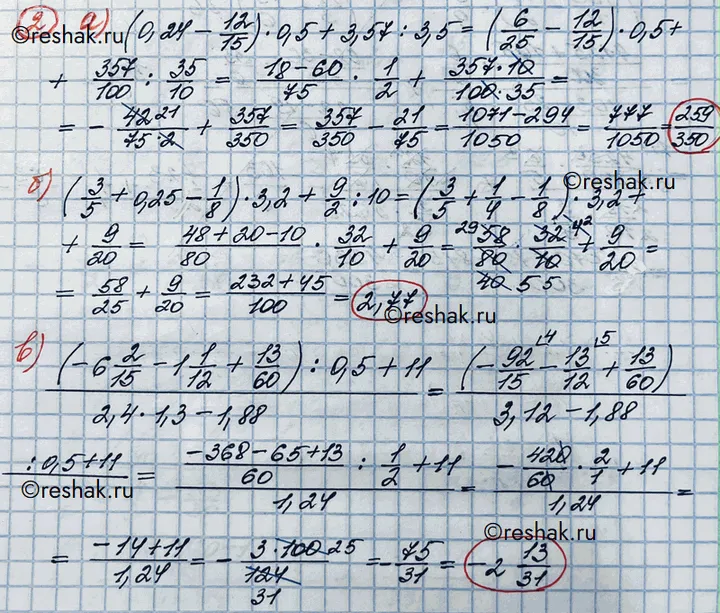 2) а) (0,24 − 12/15) · 0,5 + 3,57 : 3,5 = (6/25 − 12/15) · 0,5 +
©reshak.ru
+ 357/100 : 35/10 = (18−60)/75 · 1/2 + (357·10)/(100·35) =
= − (42 21)/(75·2) + 357/350 = 357/350 − 21/75 = (1071−294)/1050 = 777/1050 = 259/350
б) (3/5 + 0,25 − 1/8) · 3,2 + 9/2 : 10 = (3/5 + 1/4 − 1/8) · 3,2 +
©reshak.ru
+ 9/20 = (48+20−10)/80 · 32/10 + 9/20 = (29 58)/(80 40) · (32 4 2)/(10 5 5) + 9/20 =
= 58/25 + 9/20 = (232+45)/100 = 2,77
©reshak.ru
в) ((−6 2/15 − 1 1/12 + 13/60) : 0,5 + 11)/(2,4 · 1,3 − 1,88) = (−92/15 \4 − 13/12 \5 + 13/60)/(3,12 − 1,88)
(: 0,5 + 11) = ((−368−65+13)/60 : 1/2 + 11)/1,24 = (−420/60 · 2/1 + 11)/1,24 =
©reshak.ru
©reshak.ru
= (−14+11)/1,24 = − (3·100 25)/(124 31) = − 75/31 = −2 13/31